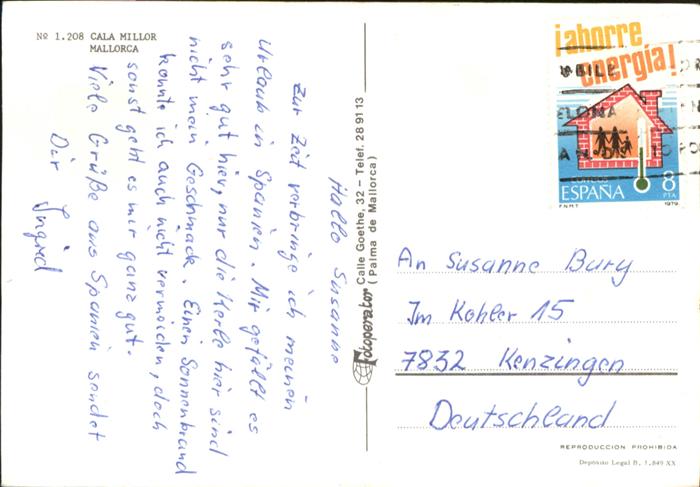 Nº 1.208 CALA MILLOR
MALLORCA
Hallo Susanne
Zur Zeit verbringe ich meinen
Urlaub in Spanien. Mir gefällt es
sehr gut hier, nur die Kerle hier sind
nicht mein Geschmack. Einen Sonnenbrand
konnte ich auch nicht vermeiden, doch
sonst geht es mir ganz gut.
Viele Grüße aus Spanien sendet
Dir Ingrid
Fotoperator Calle Goethe, 32 – Telef. 28 91 13
(Palma de Mallorca)
¡ahorre
energía!
CORREOS
ESPAÑA
8
PTA
F.N.M.T.
1979
An Susanne Bury
Im Kohler 15
7832 Kenzingen
Deutschland
REPRODUCCION PROHIBIDA
Depósito Legal B. 1.849 XX